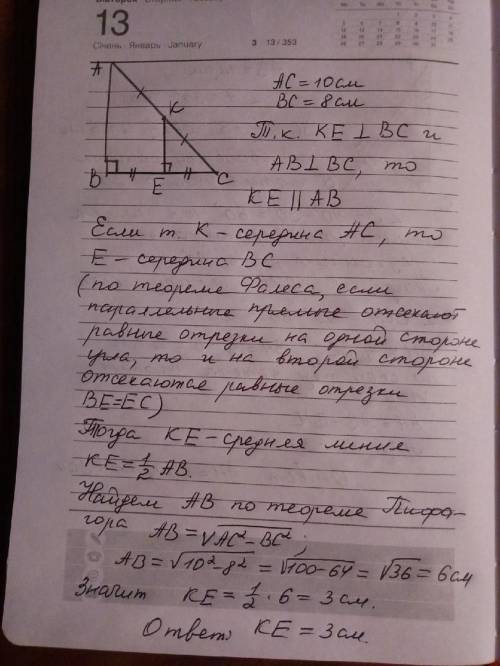 Вівторок
13
Січень · Январь · January
3 13 / 353
A
K
B
E
C
AC = 10 см
BC = 8 см
Т.к. KE ⊥ BC и
AB ⊥ BC, то
KE || AB
Если т. K - середина AC, то
E - середина BC
(по теореме Фалеса, если
параллельные прямые отсекают
равные отрезки на одной стороне
угла, то и на второй стороне
отсекаются равные отрезки
BE=EC)
Тогда KE - средняя линия
KE = 1/2 AB.
Найдем AB по теореме Пифа-
гора AB = √AC² - BC².
AB = √10² - 8² = √100 - 64 = √36 = 6 см
Значит KE = 1/2 · 6 = 3 см.
Ответ: KE = 3 см.